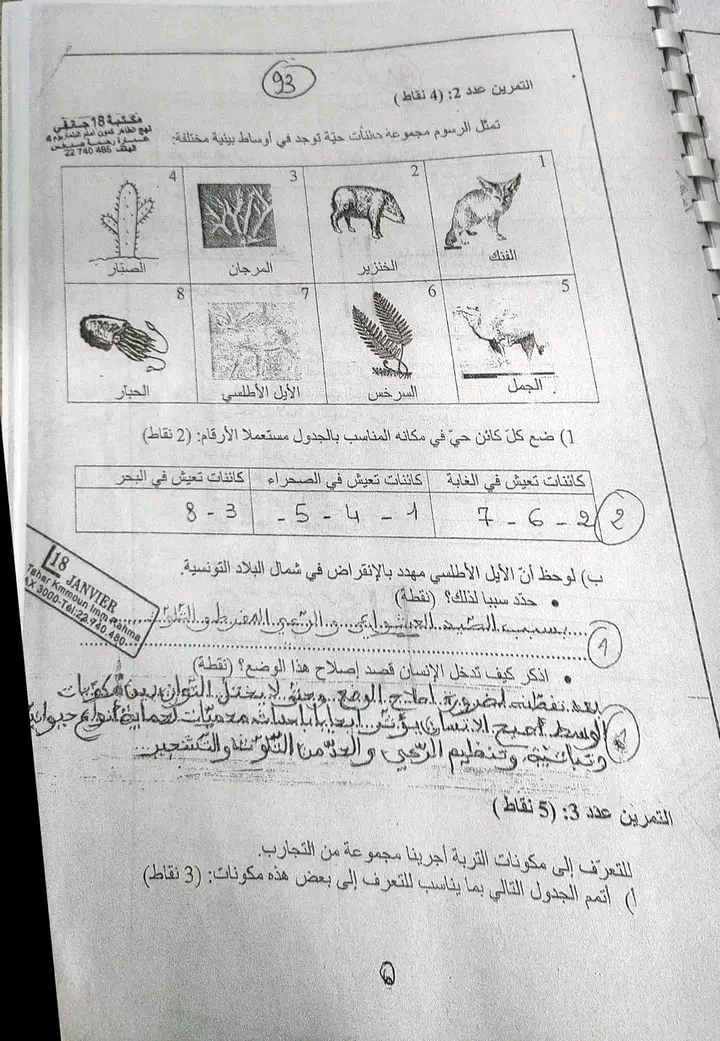 93
التمرين عدد 2: (4 نقاط)
مكتبة 18 جانفي
الهاتف 22 740 485
تمثل الرسوم مجموعة كائنات حيّة توجد في أوساط بيئية مختلفة:
1 2 3 4
الفنك الخنزير المرجان الصبّار
5 6 7 8
الجمل السرخس الأيل الأطلسي الحبّار
1) ضع كلّ كائن حيّ في مكانه المناسب بالجدول مستعملا الأرقام: (2 نقاط)
كائنات تعيش في الغابة كائنات تعيش في الصحراء كائنات تعيش في البحر
2 - 6 - 7 1 - 4 - 5 - 3 - 8
2
ب) لوحظ أنّ الأيل الأطلسي مهدد بالإنقراض في شمال البلاد التونسية.
18 JANVIER
Taher Kmmoun Imm Rahma
AX 3000-Tél:22.740.480
• حدّد سببا لذلك؟ (نقطة)
بسبب الصّيد العشوائي والرّعي المفرط والتلوّث
1
• اذكر كيف تدخل الإنسان قصد إصلاح هذا الوضع؟ (نقطة)
بعد تفطّنه لضرورة إصلاح الوضع وحتى لا يختلّ التوازن بين مكوّنات
الوسط أصبح الإنسان محميّات لحماية أنواع حيوانية
ونباتية وتنظيم الرّعي والحدّ من التّلوّث والتّشجير
التمرين عدد 3: (5 نقاط)
للتعرّف إلى مكونات التربة أجرينا مجموعة من التجارب.
أ) أتمم الجدول التالي بما يناسب للتعرف إلى بعض هذه مكونات: (3 نقاط)
6